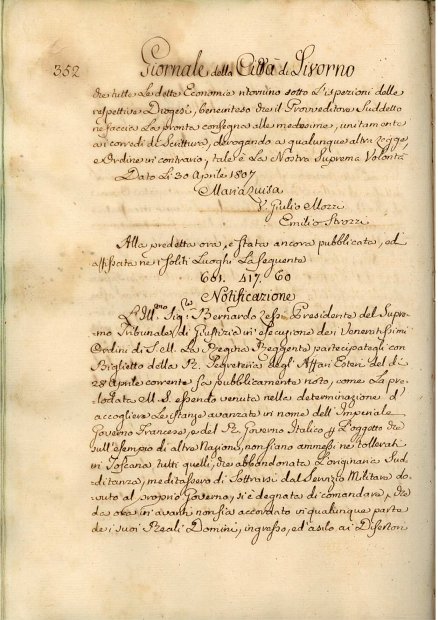 352 Giornale della Città di Livorno
che tutte Le dette Economie ritornino sotto L'ispezioni delle
respettive Diogesi, beninteso che il Provveditore Suddetto
ne faccia La pronta consegna alle medesime, unitamente
ai corredi di Scrittura, derogando a qualunque altra Legge,
e Ordine in contrario, tale è La Nostra Suprema Volontà
Dato Li 30 Aprile 1807
Maria Luisa
V. Giulio Mozzi
Emilio Strozzi
Alla predetta ora, è stata ancora pubblicata, ed
affissata nei soliti Luoghi La Seguente
661. 417. 60
Notificazione
L'Ill.mo Sig.re Bernardo Lessi Presidente del Supre-
mo Tribunale di Giustizia in esecuzione dei Veneratissimi
Ordini di S. M. La Regina Reggente partecipategli con
Biglietto della R. Segreteria degl'Affari Esteri del dì
28 Aprile corrente fa pubblicamente noto, come La pre-
lodata M. S. essendo venuta nella determinazione d'
accogliere Le istanze avanzate in nome dell'Imperiale
Governo Francese, e del R. Governo Italico, p. L'oggetto che
sull'esempio di altre Nazioni, non siano ammessi ne tollerati
in Toscana tutti quelli, che abbandonata L'originaria Sud-
ditanza, meditassero di Sottrarsi dal Servizio Militare do-
vuto al proprio Governo, si è degnata di comandare, che
da ora in avanti non sia accordato in qualunque parte
dei suoi Reali Domini, ingresso, ed asilo ai Disertori